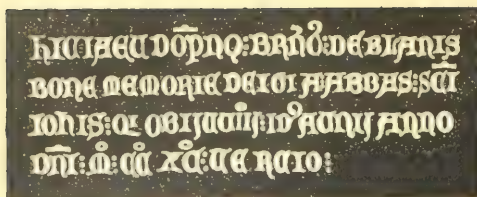 hIC IACET DOP̄NQ: BRN̄D: DE BLANIS
BONE MEMORIE DEI GI A ABBAS: SC̄I
IOhIS: QI OBIJT IDꝰ ANNO
DN̄I: M̊: CC̊ XC̊: TE RCIO: